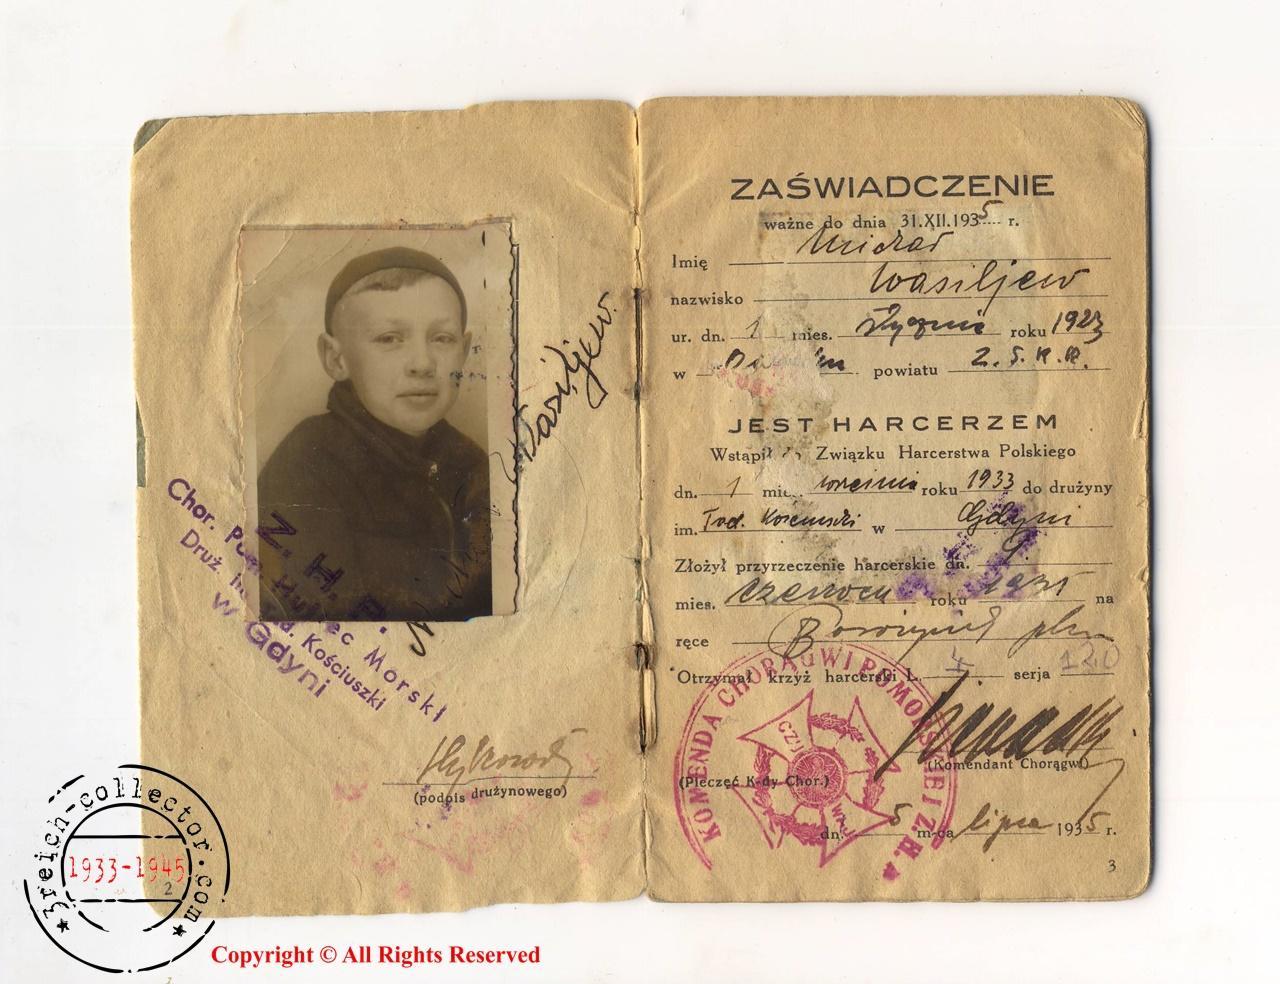 Wasiljew.
Z. H. P.
Chor. Pom. Hufiec Morski
Druż. im. Kościuszki
w Gdyni
(podpis drużynowego)
2
ZAŚWIADCZENIE
ważne do dnia 31.XII.1935 r.
Imię Michał
nazwisko Wasiljew
ur. dn. 1 mies. stycznia roku 1923
w powiatu Z.S.R.R.
JEST HARCERZEM
Wstąpił do Związku Harcerstwa Polskiego
dn. 1 mies. września roku 1933 do drużyny
im. Tad. Kościuszki w Gdyni
Złożył przyrzeczenie harcerskie dn. 9
mies. czerwca roku 1935 na
ręce
Otrzymał krzyż harcerski L. 4. serja 120
KOMENDA CHORĄGWI POMORSKIEJ Z.H.P.
CZUWAJ
(Komendant Chorągwi)
(Pieczęć K-dy Chor.)
dn. 5 m-ca lipca 1935 r.
3
3reich-collector.com
1933-1945
Copyright © All Rights Reserved